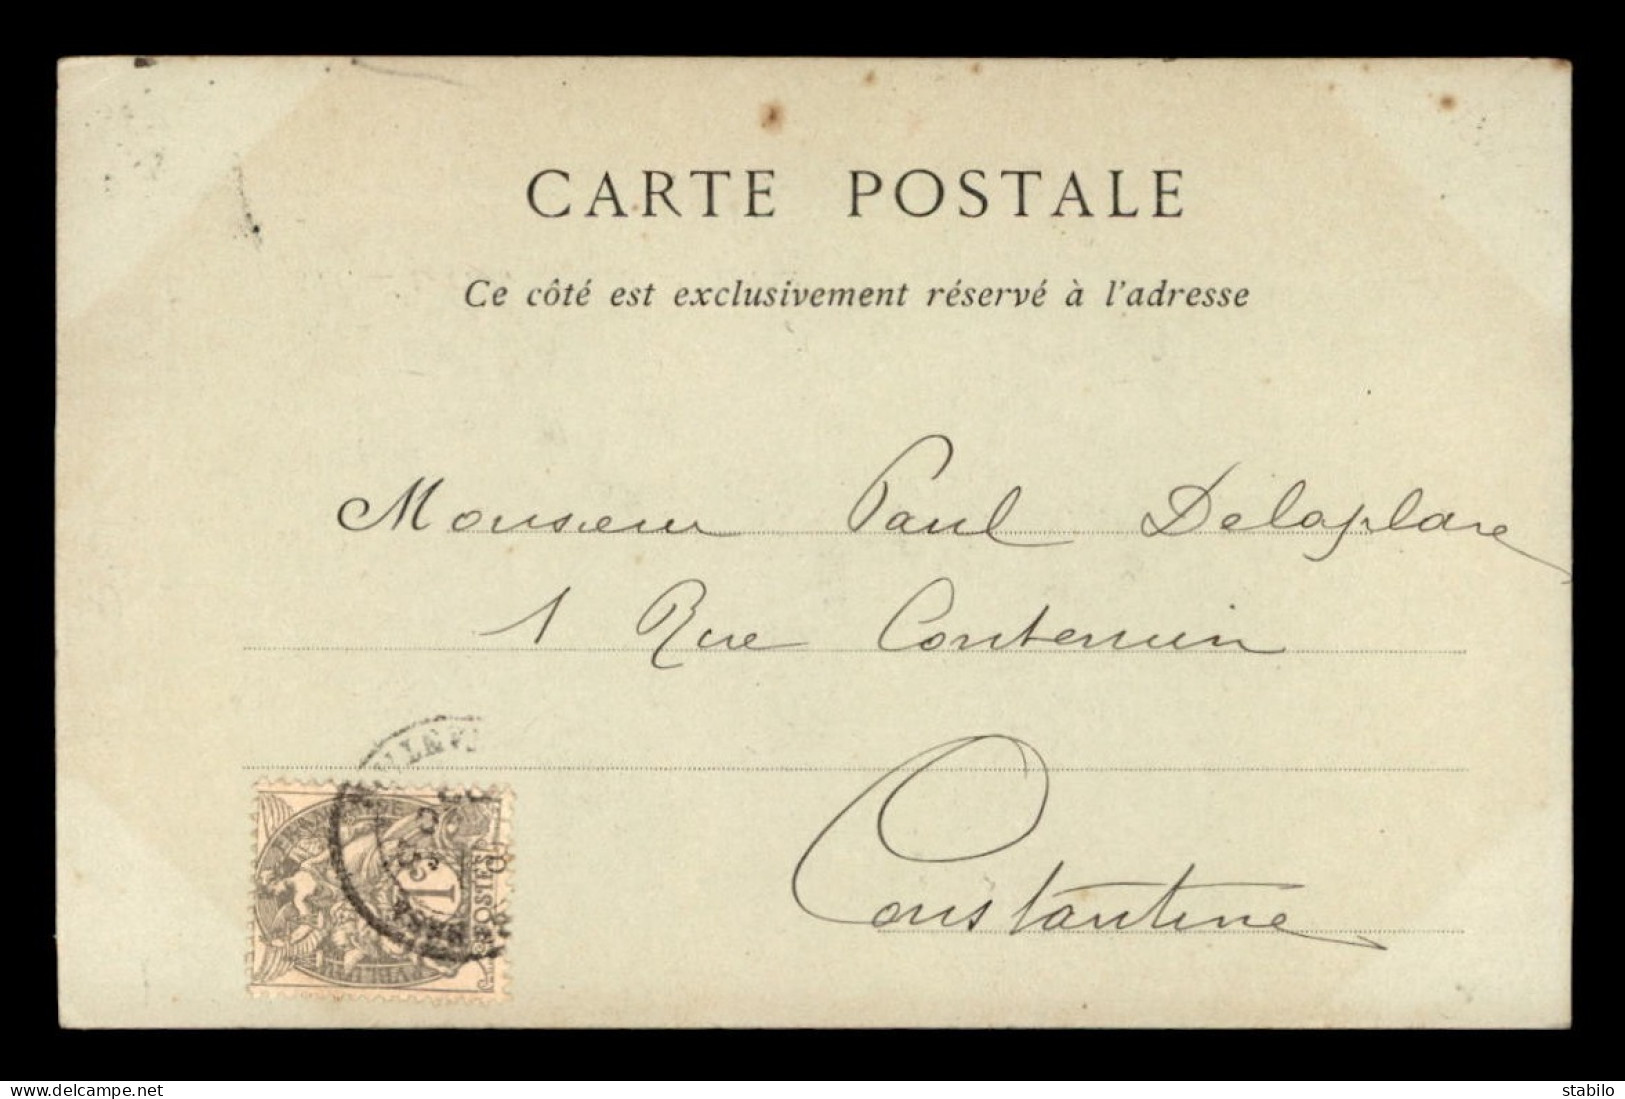 CARTE POSTALE
Ce côté est exclusivement réservé à l'adresse
Monsieur Paul Delaplace
1 Rue
Constantine
1
POSTES
website-delcampe.net
stabilo